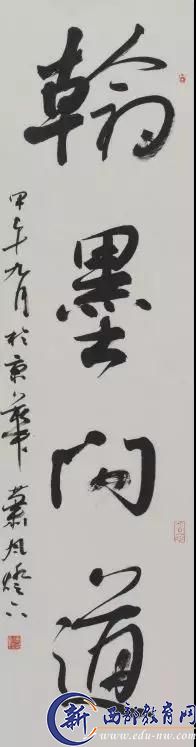 翰墨问道
甲午九月於京華 蕭风燈下
新 西部教育网
www.edu-nw.com